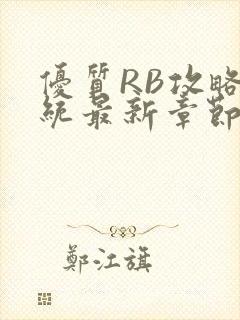 優質RB攻略
統最新章節
鄭江旗